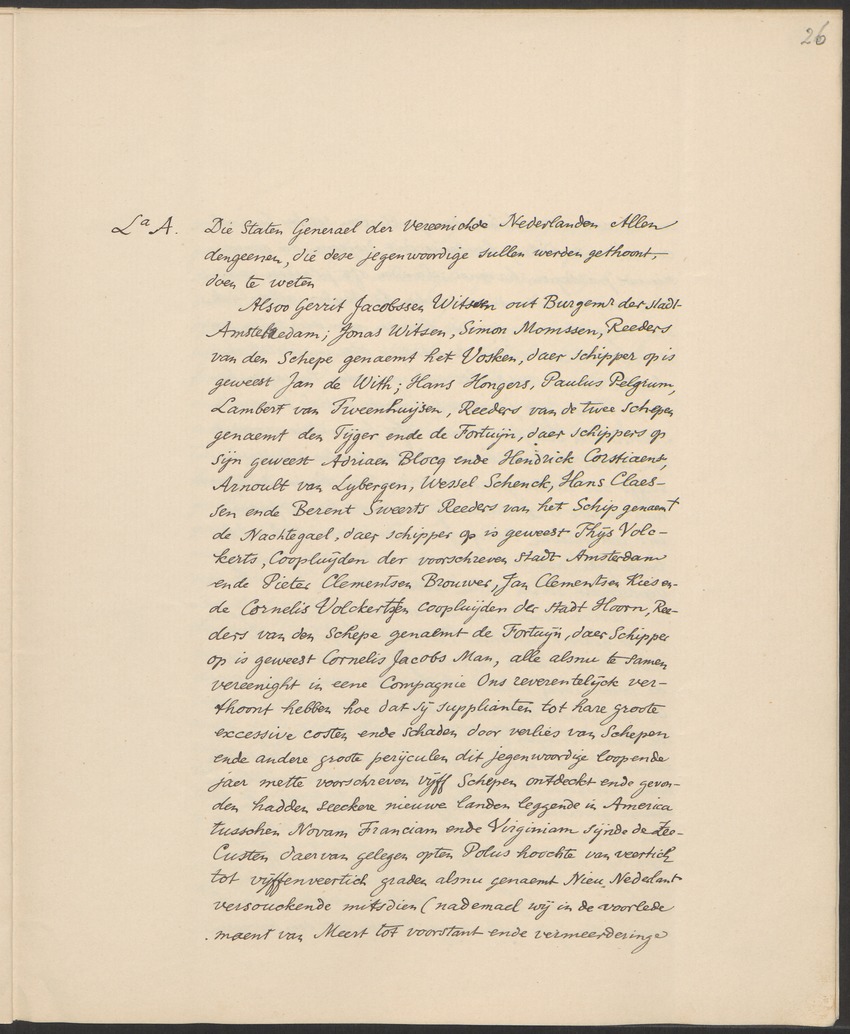 26
La A. Die Staten Generael der Vereenichde Nederlanden Allen
dengeenen, die dese jegenwoordige sullen werden gethoont,
doen te weten
Alsoo Gerrit Jacobssen Witsen out Burgemr der stadt
Amstelredam; Jonas Witsen, Simon Momssen, Reeders
van den Schepe genaemt het Vosken, daer schipper op is
geweest Jan de With; Hans Hongers, Paulus Pelgrum,
Lambert van Tweenhuijsen, Reeders van de twee schepen
genaemt den Tijger ende de Fortuijn, daer schippers op
sijn geweest Adriaen Blocq ende Hendrick Corstiaens,
Arnoult van Lybergen, Wessel Schenck, Hans Claes-
sen ende Berent Sweerts Reeders van het Schip genaemt
de Nachtegael, daer schipper op is geweest Thijs Volc-
kerts, Coopluijden der voorschreven stadt Amsterdam
ende Pieter Clementsen Brouwer, Jan Clementsen Kies en-
de Cornelis Volckertsen coopluijden der stadt Hoorn, Ree-
ders van den Schepe genaemt de Fortuijn, daer Schipper
op is geweest Cornelis Jacobs Man, alle alsnu te samen
vereenight in eene Compagnie Ons reverentelijck ver-
thoont hebben hoe dat sij supplianten tot hare groote
excessive costen ende schaden door verlies van Schepen
ende andere groote perijculen dit jegenwoordige loopende
jaer mette voorschreven vijff Schepen ontdeckt ende gevon-
den hadden seeckere nieuwe landen leggende in America
tusschen Novam Franciam ende Virginiam sijnde de Zee-
Custen daervan gelegen opten Polus hoochte van veertich
tot vijffenveertich graden alsnu genaemt Nieu Nederlant
versouckende mitsdien (nademael wij in de voorlede
maent van Meert tot voorstant ende vermeerderinge